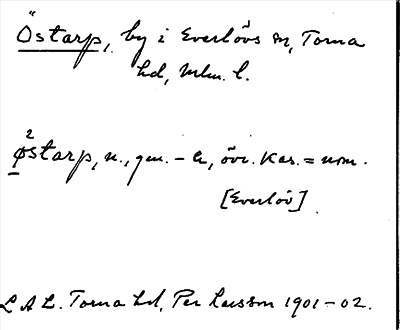 Östarp, by i Everlövs sn, Torna
hd, Mlm. l.
²østarp, n., gen. – a, övr. kas. = nom.
[Everlöv]
L A L. Torna hd, Per Larsson 1901–02.